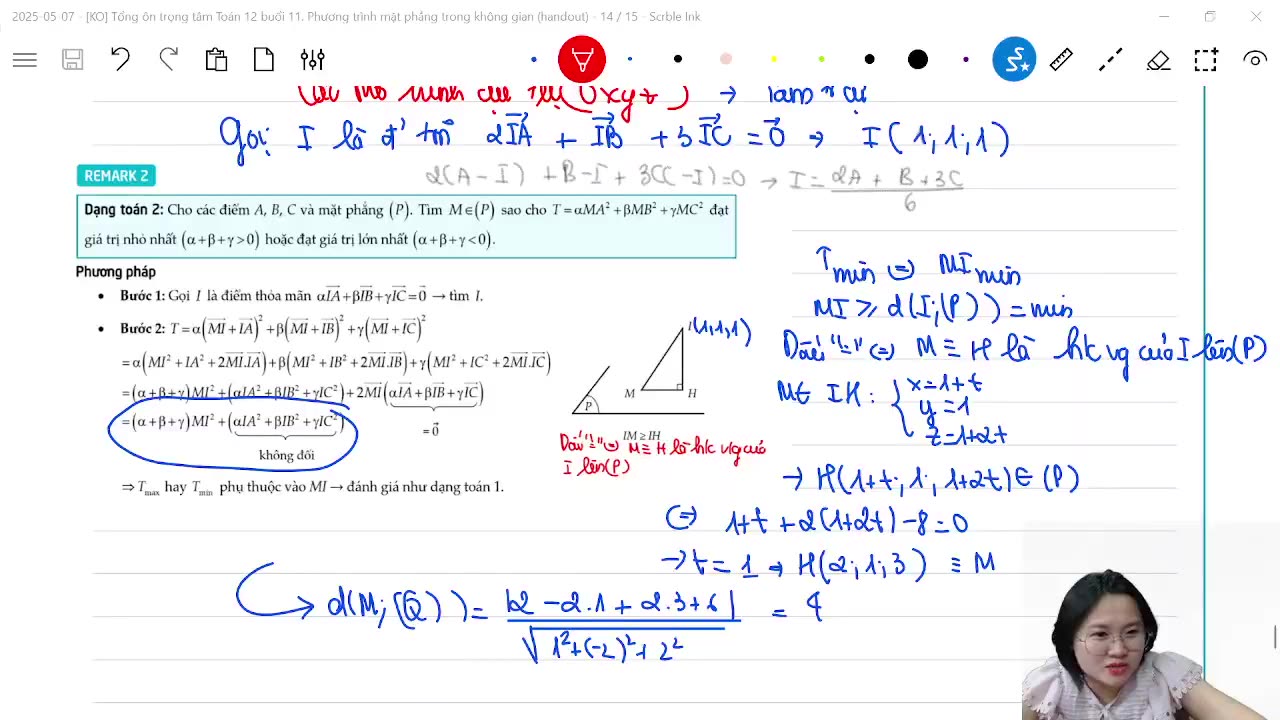 2025-05-07 - [KO] Tổng ôn trọng tâm Toán 12 buổi 11. Phương trình mặt phẳng trong không gian (handout) - 14 / 15 - Scrble Ink
Gọi I là đ' tm 2IA⃗ + IB⃗ + 3IC⃗ = 0⃗ → I(1; 1; 1)
2(A - I) + B - I + 3(C - I) = 0 → I = (2A + B + 3C)/6
REMARK 2
Dạng toán 2: Cho các điểm A, B, C và mặt phẳng (P). Tìm M∈(P) sao cho T = αMA² + βMB² + γMC² đạt
giá trị nhỏ nhất (α+β+γ>0) hoặc đạt giá trị lớn nhất (α+β+γ<0).
Phương pháp
• Bước 1: Gọi I là điểm thỏa mãn αIA⃗+βIB⃗+γIC⃗=0⃗ → tìm I.
• Bước 2: T = α(MI⃗+IA⃗)²+β(MI⃗+IB⃗)²+γ(MI⃗+IC⃗)²
=α(MI²+IA²+2MI⃗.IA⃗)+β(MI²+IB²+2MI⃗.IB⃗)+γ(MI²+IC²+2MI⃗.IC⃗)
=(α+β+γ)MI²+(αIA²+βIB²+γIC²)+2MI⃗(αIA⃗+βIB⃗+γIC⃗)
=(α+β+γ)MI²+(αIA²+βIB²+γIC²)
=0⃗
không đổi
⇒ Tmax hay Tmin phụ thuộc vào MI → đánh giá như dạng toán 1.
I(1,1,1)
M
H
P
IM ≥ IH
Dấu "=" ⇔ M ≡ H là h/c v/g của
I lên (P)
Tmin ⇔ MI min
MI ≥ d(I;(P)) = min
Dấu "=" ⇔ M ≡ H là h/c vg của I lên (P)
IH: { x=1+t
y=1
z=1+2t
→ H(1+t; 1; 1+2t) ∈ (P)
⇔ 1+t + 2(1+2t) - 8 = 0
→ t = 1 → H(2; 1; 3) ≡ M
d(M;(Q)) = |2 - 2.1 + 2.3 + 6| / √(1²+(-2)²+2²) = 4